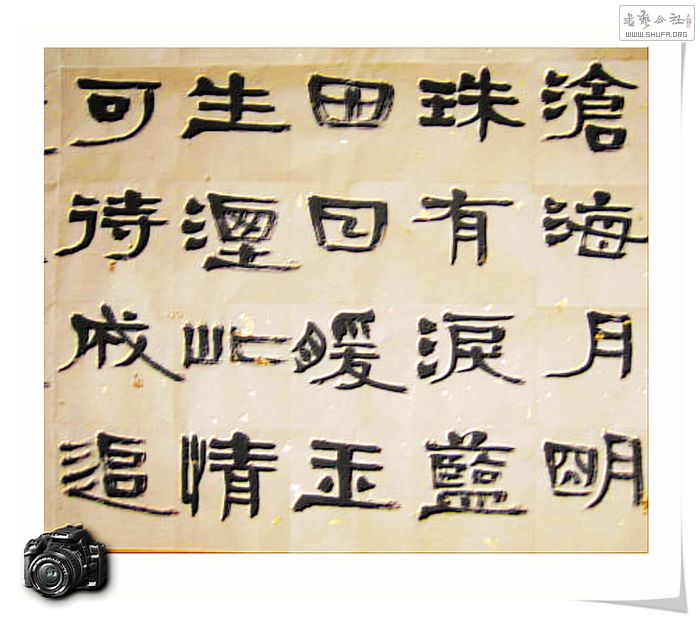 滄海月明
珠有淚藍
田日暖玉
生湮此情
可待成追
書藝公社
WWW.SHUFA.ORG